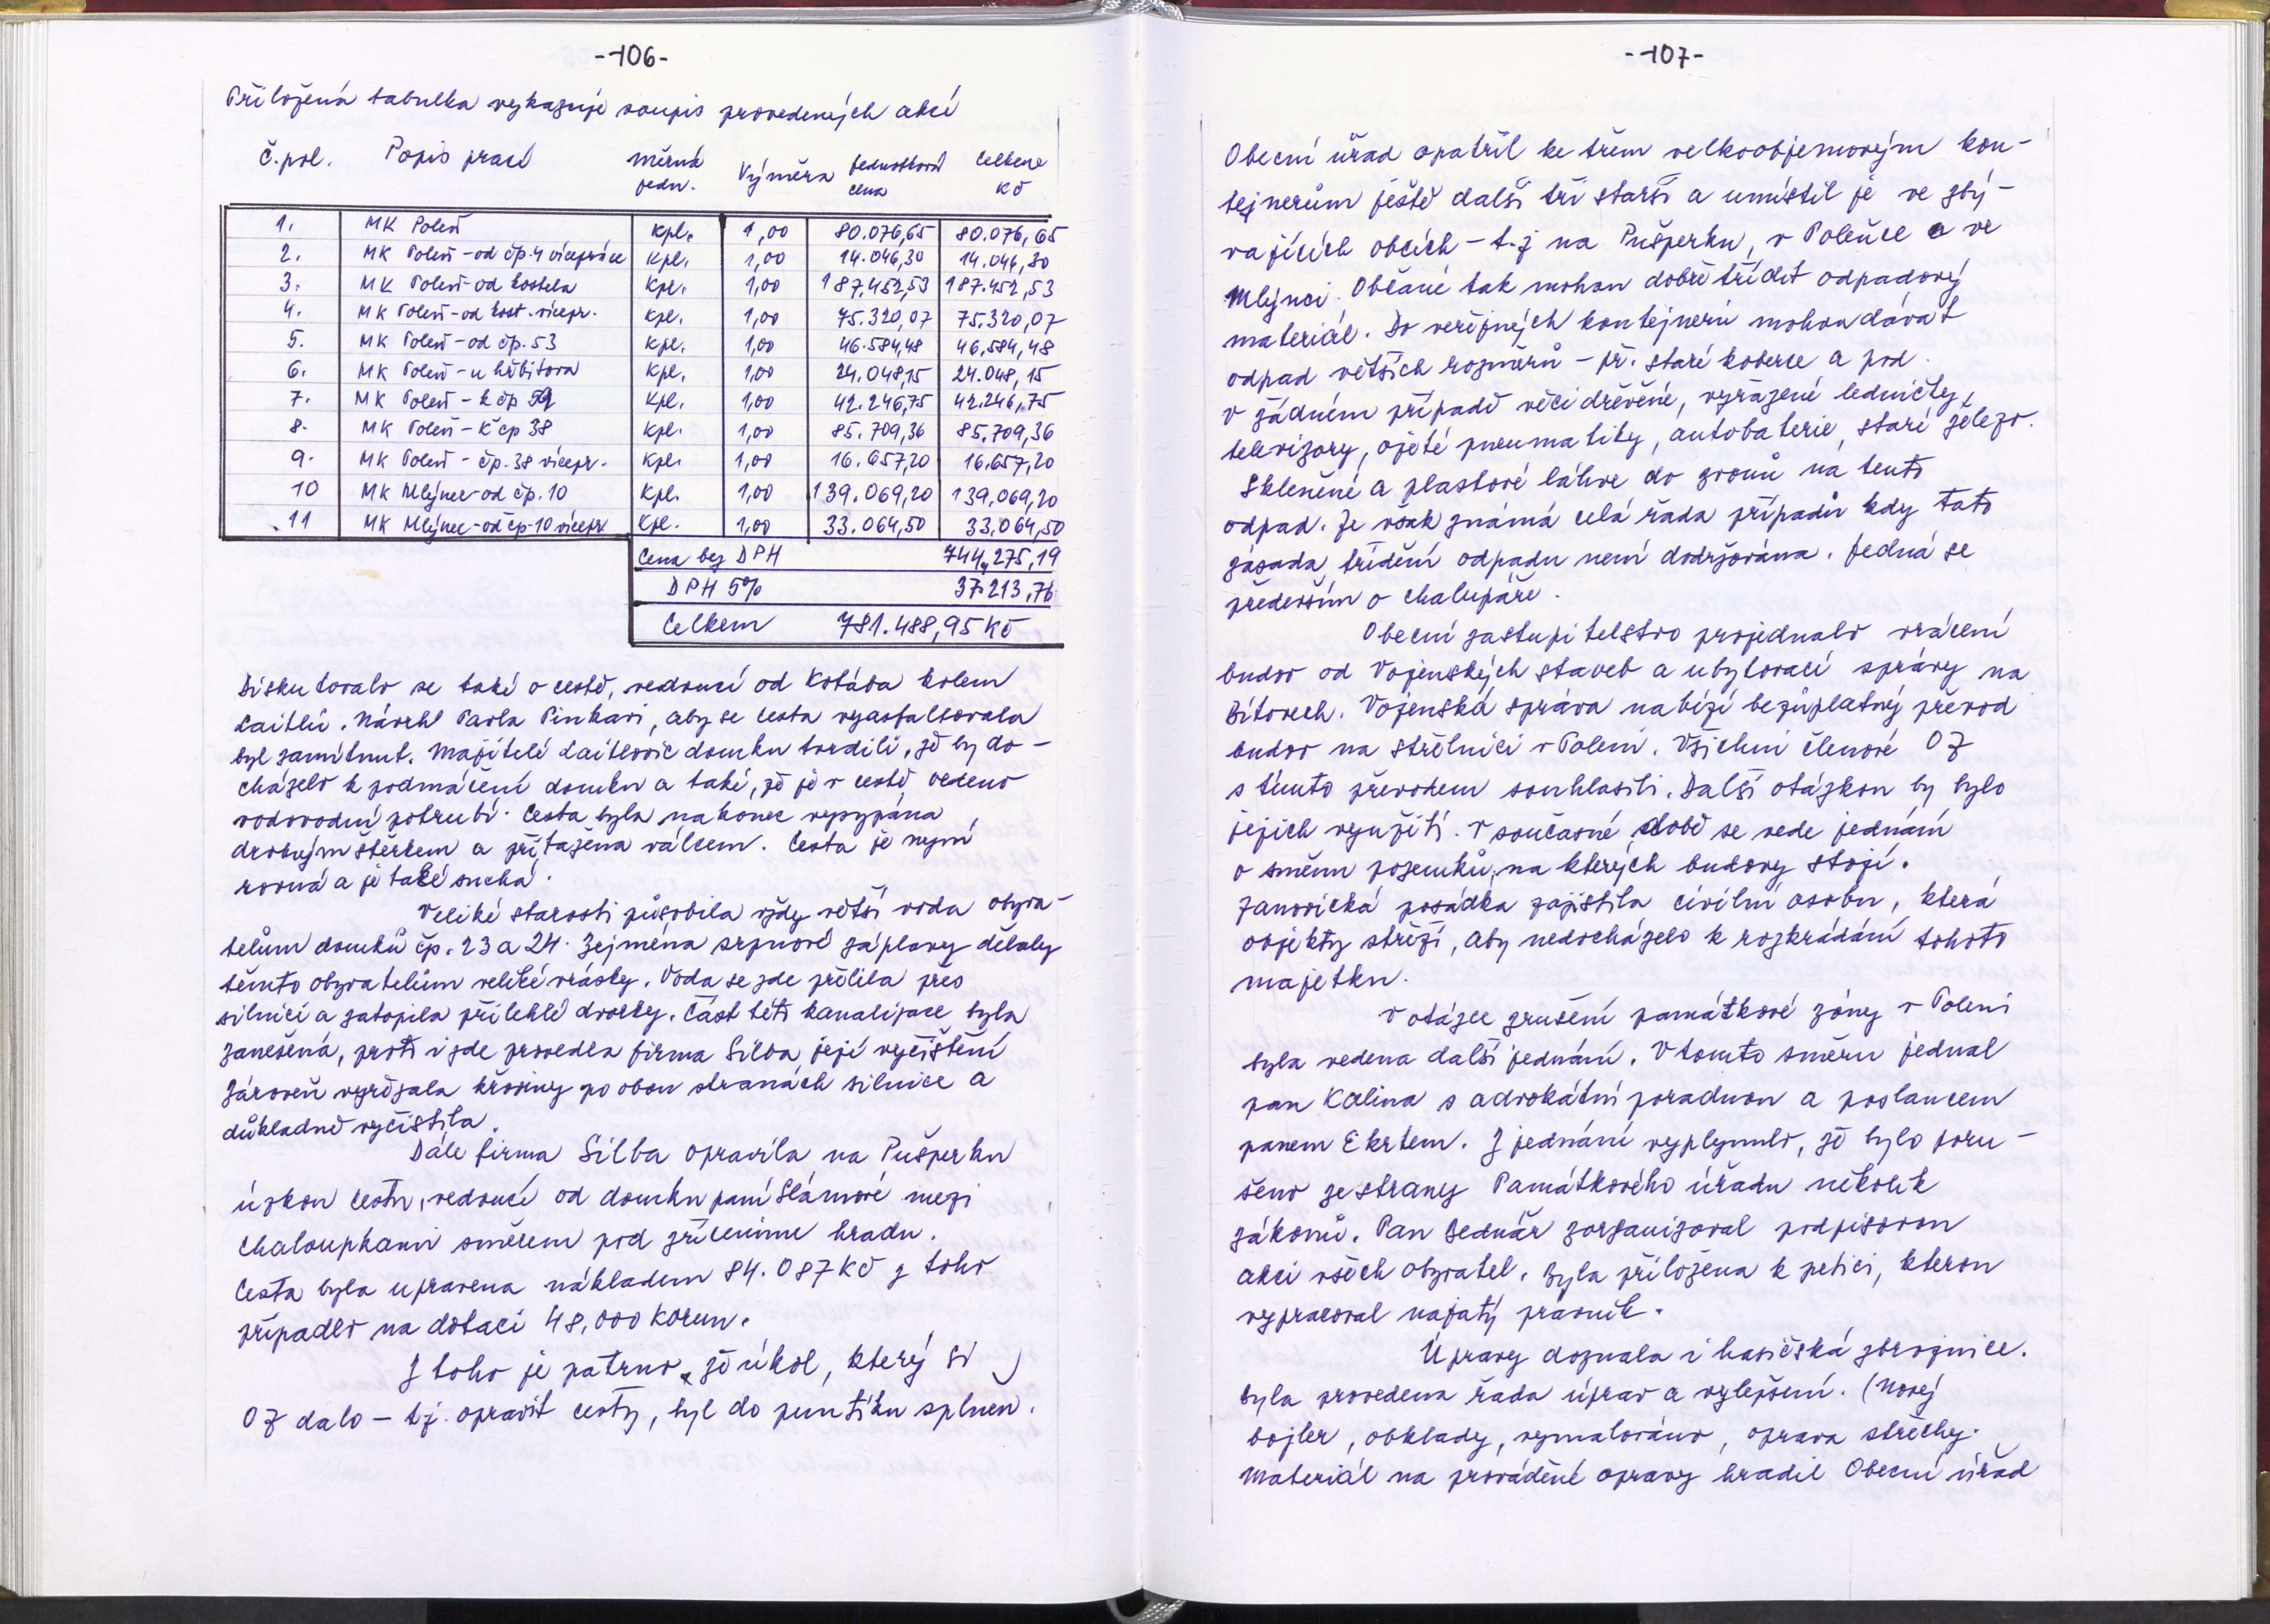 -106-
Přiložená tabulka vykazuje soupis provedených akcí
č.pol. Popis prací měrná jedn. Výměra Jednotková cena Celkem Kč
1. MK Poleň kpl. 1,00 80.076,65 80.076,65
2. MK Poleň-od čp.4 vícepráce kpl. 1,00 14.046,30 14.046,30
3. MK Poleň-od kostela kpl. 1,00 187.452,53 187.452,53
4. MK Poleň-od kost.vícepr. kpl. 1,00 75.320,07 75.320,07
5. MK Poleň-od čp.53 kpl. 1,00 46.584,48 46.584,48
6. MK Poleň-u hřbitova kpl. 1,00 24.048,15 24.048,15
7. MK Poleň - k čp 59 kpl. 1,00 42.246,75 42.246,75
8. MK Poleň - k čp 38 kpl. 1,00 85.709,36 85.709,36
9. MK Poleň - čp.38 vícepr. kpl. 1,00 16.657,20 16.657,20
10 MK Mlýnec-od čp.10 kpl. 1,00 139.069,20 139.069,20
11 MK Mlýnec-od čp-10 vícepr kpl. 1,00 33.064,50 33.064,50
Cena bez DPH 744.275,19
DPH 5% 37.213,76
Celkem 781.488,95 Kč
Diskutovalo se také o cestě, vedoucí od Kotába kolem
Laitlů. Návrh Pavla Pinkavi, aby se cesta vyasfaltovala
byl zamítnut. Majitelé Laitlovic domku tvrdili, že by do-
cházelo k podmáčení domku a také, že je v cestě vedeno
vodovodní potrubí. Cesta byla nakonec vysypána
drobným štěrkem a přitažena válcem. Cesta je nyní
rovná a je také suchá.
Veliké starosti působila vždy větší voda obyva-
telům domků čp. 23 a 24. Zejména srpnové záplavy dělaly
těmto obyvatelům veliké vrásky. Voda se zde přelila přes
silnici a zatopila přilehlé dvorky. Část této kanalizace byla
zanešená, proto i zde provedla firma Silba její vyčištění
Zároveň vyřezala křoviny po obou stranách silnice a
důkladně vyčistila.
Dále firma Silba opravila na Pušperku
úzkou cestu, vedoucí od domku paní Slámové mezi
chaloupkami směrem pod zříceninu hradu.
Cesta byla upravena nákladem 84.087 Kč z toho
připadlo na dotaci 48,000 korun.
Z toho je patrno, že úkol, který si
OZ dalo - tj. opravit cesty, byl do puntíku splněn.
-107-
Obecní úřad opatřil ke třem velkoobjemovým kon-
tejnerům ještě další tři starší a umístil je ve zbý-
vajících obcích - t.j na Pušperku, v Poleňce a ve
Mlýnci. Občané tak mohou dobře třídit odpadový
materiál. Do veřejných kontejnerů mohou dávat
odpad větších rozměrů - př. staré koberce a pod.
v žádném případě věci dřevěné, vyřazené ledničky,
televizory, ojeté pneumatiky, autobaterie, staré železo.
Skleněné a plastové láhve do zvonů na tento
odpad. Je však známá celá řada případů kdy tato
zásada třídění odpadu není dodržována. Jedná se
především o chalupáře.
Obecní zastupitelstvo projednalo vrácení
budov od Vojenských staveb a ubytovací správy na
Bítovech. Vojenská správa nabízí bezúplatný převod
budov na střelnici v Poleni. Všichni členové OZ
s tímto převodem souhlasili. Další otázkou by bylo
jejich využití. V současné době se vede jednání
o směnu pozemků, na kterých budovy stojí.
Janovická posádka zajistila civilní osobu, která
objekty střeží, aby nedocházelo k rozkrádání tohoto
majetku.
V otázce zrušení památkové zóny v Poleni
byla vedena další jednání. V tomto směru jednal
pan Kalina s advokátní poradnou a poslancem
panem Ekrtem. Z jednání vyplynulo, že bylo poru-
šeno ze strany Památkového úřadu několik
zákonů. Pan Bednář zorganizoval podpisovou
akci všech obyvatel. Byla přiložena k petici, kterou
vypracoval najatý právník.
Úpravy doznala i hasičská zbrojnice.
Byla provedena řada úprav a vylepšení. (Nový
bojler, obklady, vymalováno, oprava střechy.
Materiál na prováděné opravy hradil Obecní úřad